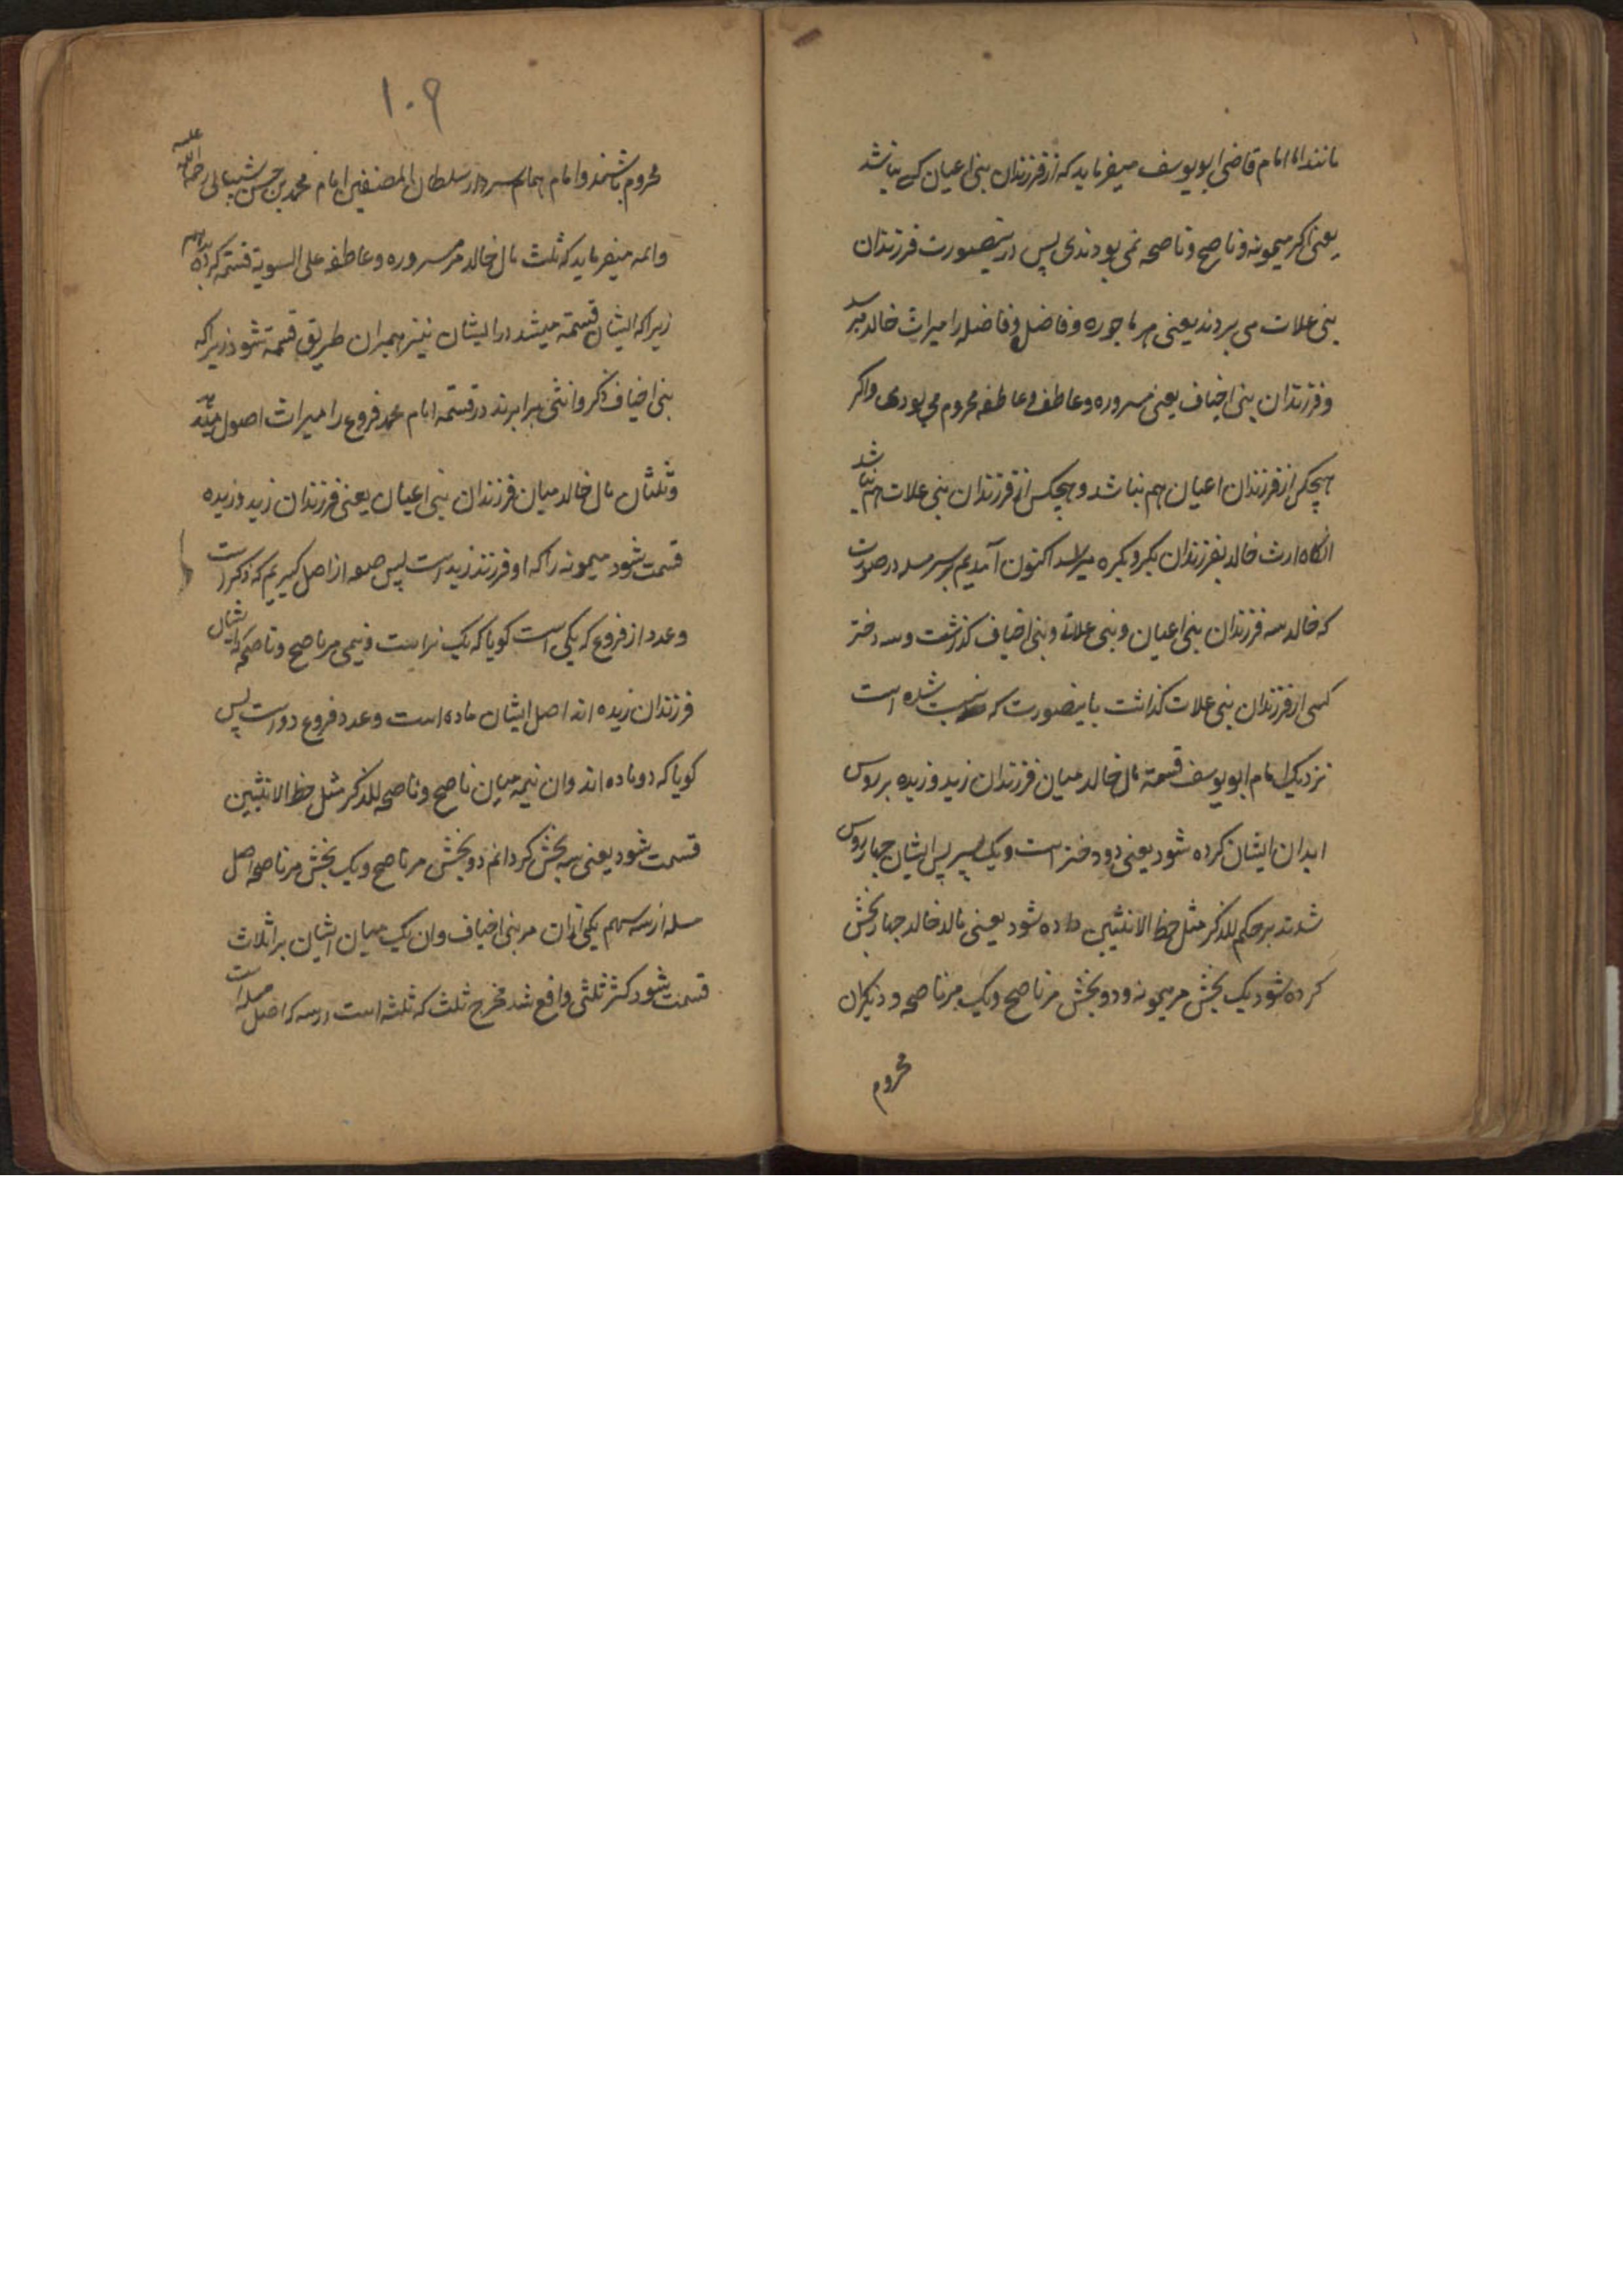 مانند اما امام قاضی ابویوسف میفرماید که از فرزندان بنی اعیان کسی نباشد
یعنی اکر میمونه و ناصح و ناصحه نمی بودندی پس درینصورت فرزندان
بنی علات می بردند یعنی مر ماجوره و فاضل و فاضله را میراث خالد میرسد
و فرزندان بنی اخیاف یعنی مسروره و عاطف و عاطفه محروم می بودی و اکر
هیچکس از فرزندان اعیان هم نباشد و هیچکس از فرزندان بنی علات هم نباشد
انکاه ارث خالد بفرزندان بکر و بکره میرسد اکنون آمدیم بر سر مسله در صورت
که خالد سه فرزندان بنی اعیان و بنی علات و بنی اخیاف کذاشت و سه دختر
کسی از فرزندان بنی علات کذاشت باینصورت که شده است
نزدیک امام ابویوسف قسمة مال خالد میان فرزندان زید و زیده بر روس
ابدان ایشان کرده شود یعنی دو دختر است و یک پسر پس ایشان چهار روس
شدند بر حکم للذکر مثل حظ الانثیین داده شود یعنی مال خالد چهار بخش
کرده شود یک بخش مر میمونه و دو بخش مر ناصح و یک مر ناصحه و دیکران
محروم
۱۰۹
محروم باشند و امام همام سردار سلطان المصنفین امام محمد بن حسن شیبانی رحمة الله علیه
و ائمه میفرماید که ثلث مال خالد مر مسروره و عاطفه علی السویة قسمة کرده
زیراکه ایشان قسمة میشد در ایشان نیز همبران طریق قسمة شود زیراکه
بنی اخیاف ذکر و انثی برابرند در قسمة امام محمد فروع را میراث اصول میدهد
و ثلثان مال خالد میان فرزندان بنی اعیان یعنی فرزندان زید و زیده
قسمت شود میمونه را که او فرزند زید است پس از اصل کیریم که ذکر است
و عدد از فروع که یکی است کویا که یک نر است و نیمی مر ناصح و ناصحه که ایشان
فرزندان زیده اند اصل ایشان ماده است و عدد فروع دو است پس
کویا که دو ماده اند و ان نیمه میان ناصح و ناصحه للذکر مثل حظ الانثیین
قسمت شود یعنی سه بخش کردانم دو بخش مر ناصح و یک بخش مر ناصحه اصل
مسله از سه سهم یکی ازان مر بنی اخیاف و ان یک میان ایشان بر اثلاث
قسمت شود کثر ثلثی واقع شد مخرج ثلث که ثلثه است در سه که اصل مسله است